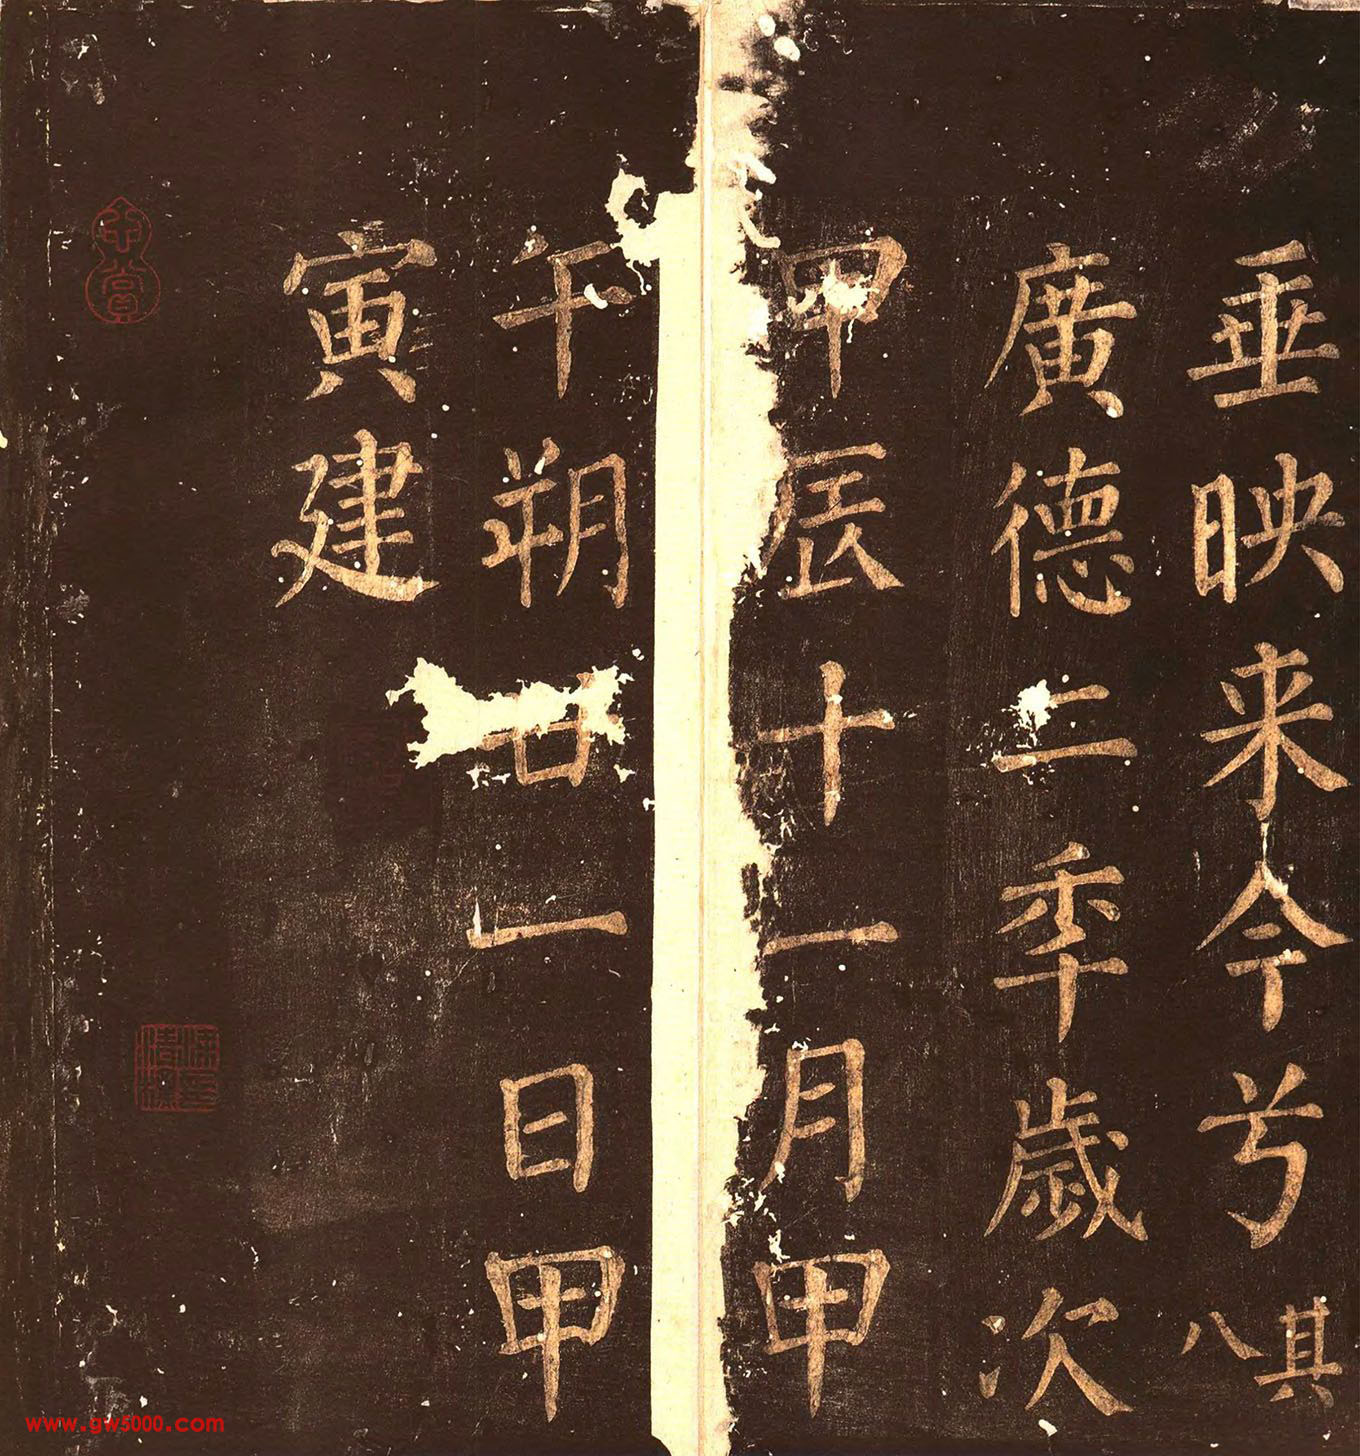 垂映来今兮其八
廣德二秊歲次
甲辰十一月甲
午朔廿一日甲
寅建
www.gw5000.com